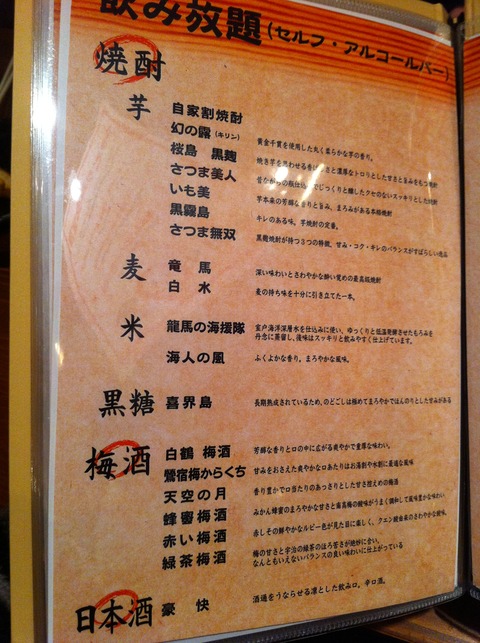 飲み放題(セルフ・アルコールバー)
焼酎
芋
自家割焼酎
幻の露(キリン) 黄金千貫を使用した丸く柔らかな芋の香り。
桜島 黒麹
さつま美人
いも美 芋本来の芳醇な香りと旨み、まろみがある本格焼酎
黒霧島 キレのある味。芋焼酎の定番。
さつま無双 黒麹焼酎が持つ3つの特徴、甘み・コク・キレのバランスがすばらしい逸品
麦
竜馬 深い味わいとさわやかな酔い覚めの最高級焼酎
白水 麦の持ち味を十分に引き立てた一本。
米
龍馬の海援隊 室戸海洋深層水を仕込みに使い、ゆっくりと低温発酵させたもろみを
丹念に蒸留し、後味はスッキリと飲みやすく仕上げています。
海人の風 ふくよかな香り。まろやかな風味。
黒糖
喜界島 長期熟成されているため、のどごしは極めてまろやかでほんのりとした甘みがある
梅酒
白鶴 梅酒 芳醇な香りと口の中に広がる爽やかで重厚な味わい。
鶯宿梅からくち 甘みをおさえた爽やかな口あたりはお湯割や水割に最適な風味
天空の月 香り豊かで口当たりのあっさりとした甘さ控えめの梅酒
蜂蜜梅酒 みかん蜂蜜のまろやかな甘さと南高梅の酸味がうまく調和して風味豊かな味わい
赤い梅酒 赤しその鮮やかなルビー色が見た目に楽しく、クエン酸由来のさわやかな酸味。
緑茶梅酒 梅の甘さと宇治の緑茶のほろ苦さが絶妙に合い、
なんともいえないバランスの良い味わいに仕上がっている
日本酒
豪快 酒通をうならせる凛とした飲み口。辛口酒。